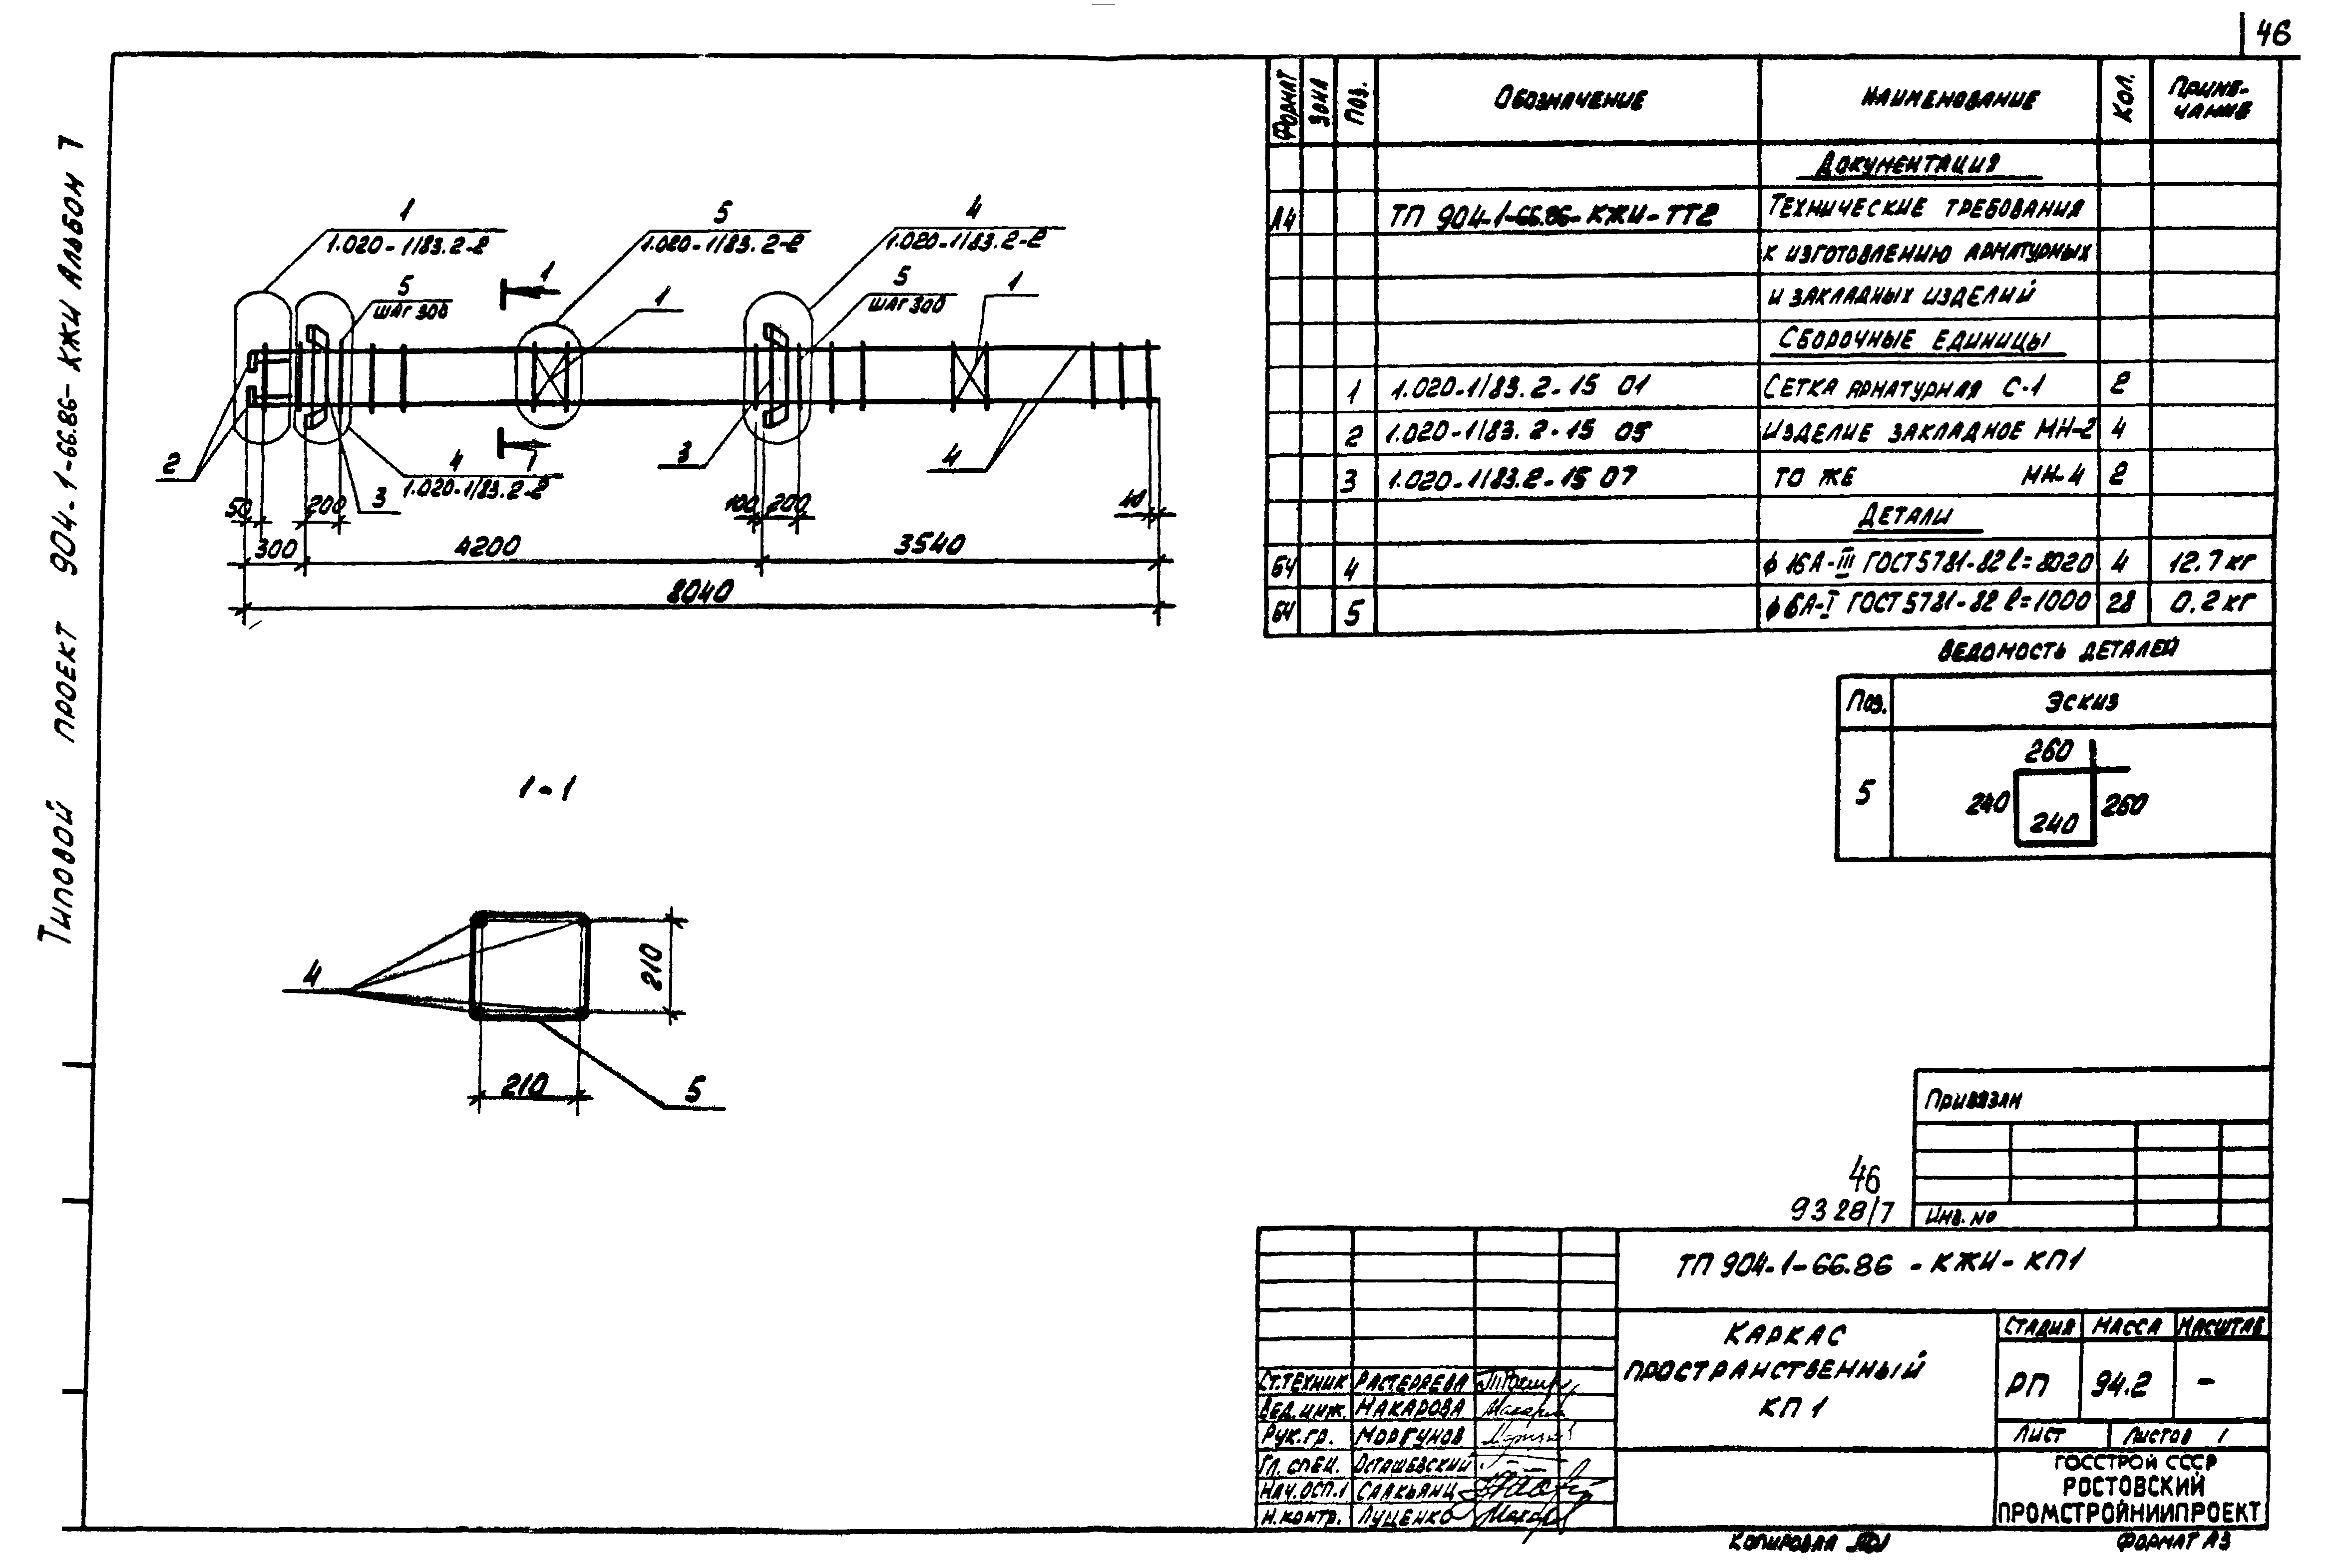 46
Типовой проект 904-1-66.86-КЖИ Альбом 7
1
1.020-1/83.2-2
5
1.020-1/83.2-2
4
1.020-1/83.2-2
5
шаг 300
1
1
5
шаг 300
1
2
4
1.020-1/83.2-2
3
1
3
4
50
200
100
200
40
300
4200
3540
8040
1-1
4
210
210
5
Формат
Зона
Поз.
Обозначение
Наименование
Кол.
Приме-
чание
Документация
А4 ТП 904-1-66.86-КЖИ-ТТ2 Технические требования
к изготовлению арматурных
и закладных изделий
Сборочные единицы
1 1.020-1/83.2-15 01 Сетка арматурная С-1 2
2 1.020-1/83.2-15 05 Изделие закладное МН-2 4
3 1.020-1/83.2-15 07 То же МН-4 2
Детали
БЧ 4 ф16А-III ГОСТ 5781-82 ℓ=8020 4 12.7 кг
БЧ 5 ф6А-I ГОСТ 5781-82 ℓ=1000 28 0.2 кг
Ведомость деталей
Поз. Эскиз
5
260
240
260
240
Привязан
46
9328/7
Инв. №
ТП 904-1-66.86-КЖИ-КП1
Каркас
пространственный
КП 1
Стадия Масса Масштаб
РП 94.2 -
Лист Листов 1
ГОССТРОЙ СССР
РОСТОВСКИЙ
ПРОМСТРОЙНИИПРОЕКТ
Ст.техник Растеряева
Вед.инж. Макарова
Рук.гр. Моргунов
Гл. спец. Осташевский
Нач.ОСП.1 Саакьянц
Н.контр. Луценко
Копировал
Формат А3